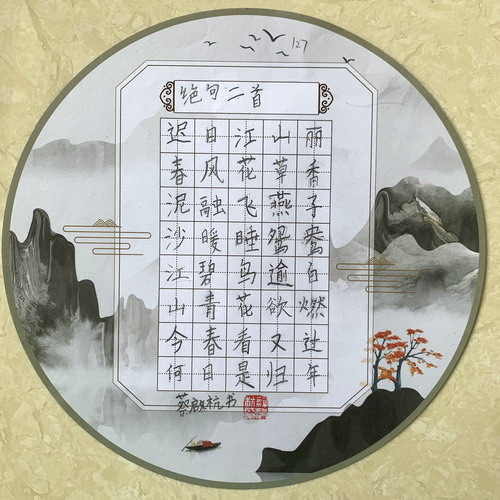 127
绝句二首
迟日江山丽
春风花草香
泥融飞燕子
沙暖睡鸳鸯
江碧鸟逾白
山青花欲燃
今春看又过
何日是归年
蔡启杭书